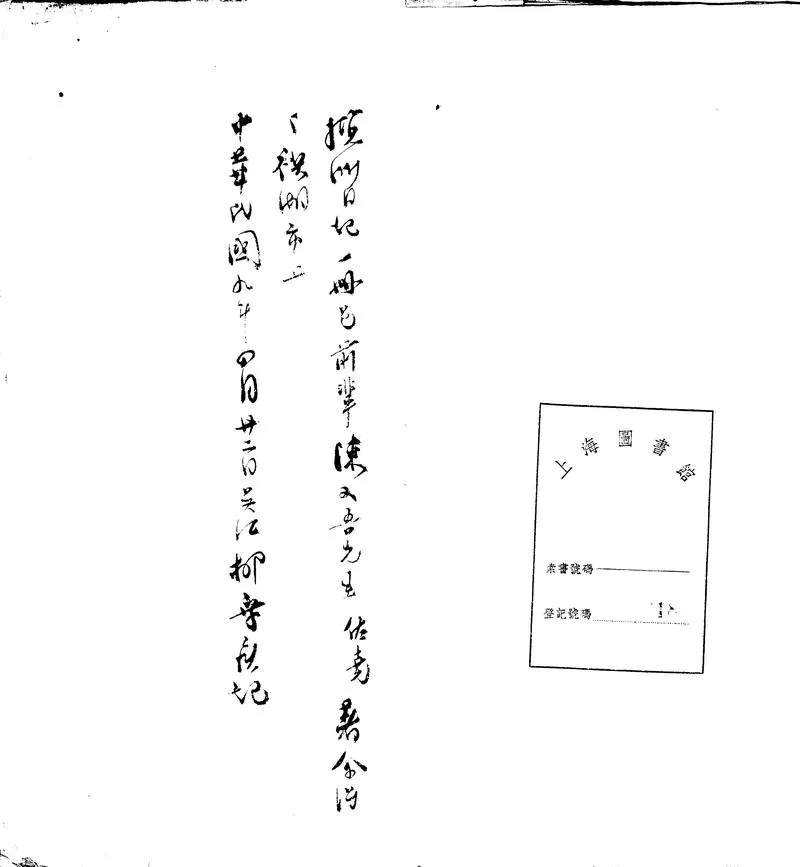 洲日記一冊邑前輩陳又吾先生佑堯著余得
之禊湖市上
中華民國九年四月廿二日吳江柳棄疾記
上海圖書館
索書號碼
登記號碼